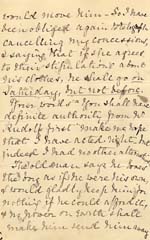 would move him - So I have
been obliged again to telegraph
cancelling my concessions,
& saying that if she agree
to their stipulations about
his clothes, he shall go on
Saturday, but not before.
Your words "You shall have
definite authority from Mr
Rudolf first" make me hope
that I have acted right but
indeed I had no other
The old man says he loves
the dog as if he were his own,
& would gladly keep him for
nothing if he could afford it,
& no power on Earth shall
make him send him away